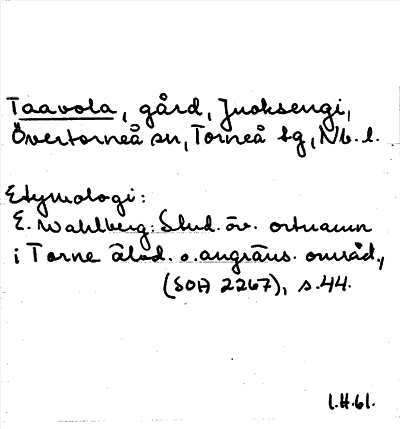 Taavola, gård, Juoksengi,
Övertorneå sn, Torneå tg, Nb. l.
Etymologi:
E. Wahlberg: Stud. öv. ortnamn
i Torne älvd. o. angräns. områd.,
(SOA 2267), s. 44.
I.H. 61.